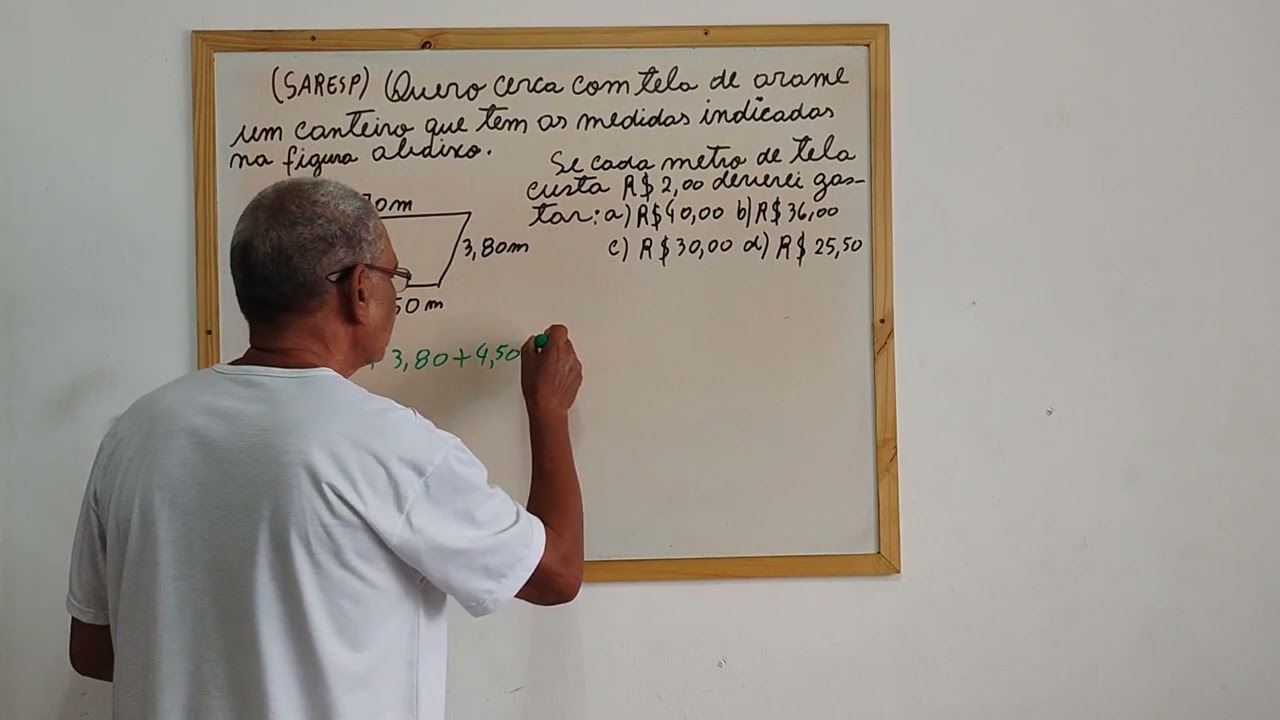 (SARESP) Quero cerca com tela de arame
um canteiro que tem as medidas indicadas
na figura abaixo.
Se cada metro de tela
custa R$ 2,00 deverei gas-
tar: a) R$ 40,00 b) R$ 36,00
c) R$ 30,00 d) R$ 25,50
70m
3,80m
50 m
3,80+4,50